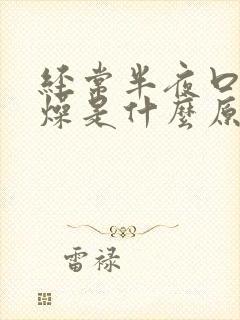 经常半夜口
燥是什麼原
雷禄